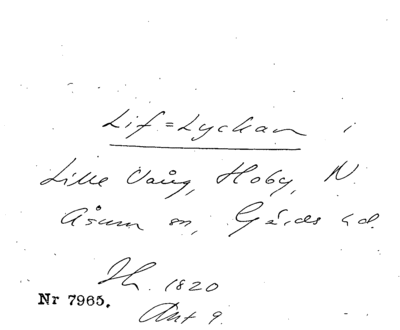 Lif=Lyckan i
Lille Vång, Hoby, N.
Åsum sn, Gärds hd.
Th. 1820
Nr 7965.
Akt 9.